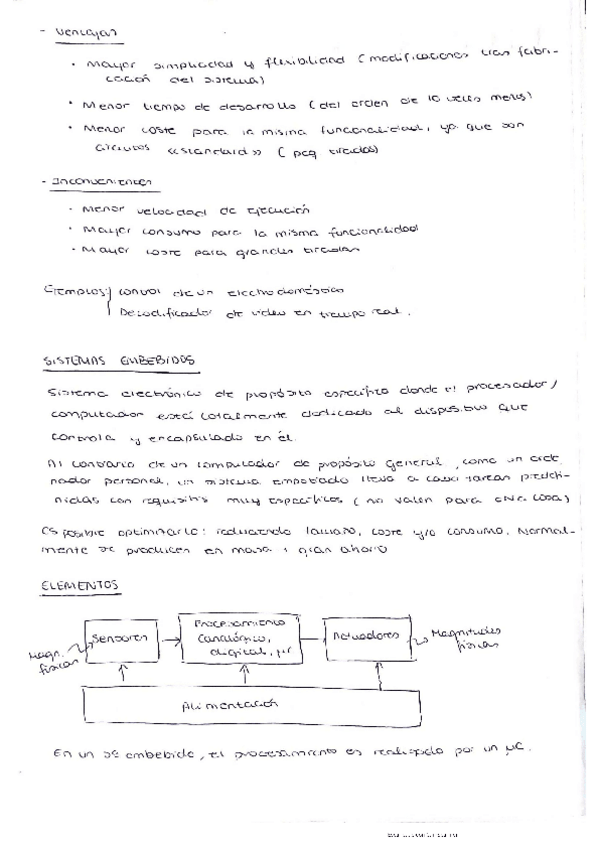 - Ventajas
• Mayor simplicidad y flexibilidad (modificaciones tras fabri-
cación del sistema)
• Menor tiempo de desarrollo (del orden de 10 veces menos)
• Menor coste para la misma funcionalidad, ya que son
circuitos «standard» (peq tiradas)
- Inconvenientes
• Menor velocidad de ejecución
• Mayor consumo para la misma funcionalidad
• Mayor coste para grandes tiradas
Ejemplos} control de un electrodoméstico
Decodificador de video en tiempo real.
SISTEMAS EMBEBIDOS
Sistema electrónico de propósito específico donde el procesador/
computador está totalmente dedicado al dispositivo que
controla y encapsulado en él.
Al contrario de un computador de propósito general, como un orde
nador personal, un sistema empotrado lleva a cabo tareas predefi-
nidas con requisitos muy específicos (no valen para otra cosa)
Es posible optimizarlo: reduciendo tamaño, coste y/o consumo. Normal-
mente se producen en masa : gran ahorro
ELEMENTOS
Magn. físicas
Sensores
Procesamiento
(analógico,
digital, μc
Actuadores
Magnitudes
físicas
Alimentación
En un se embebido, el procesamiento es realizado por un μC.